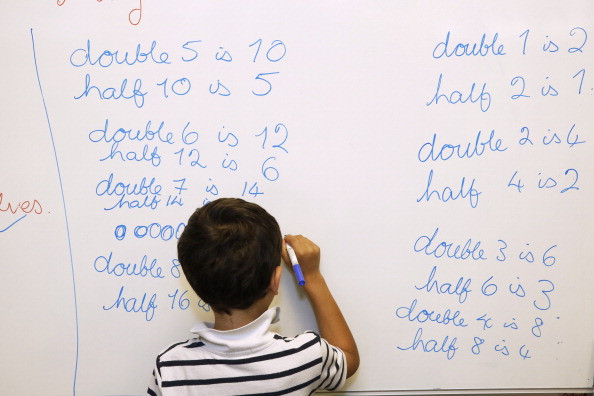 lves.
double 5 is 10
half 10 is 5
double 6 is 12
half 12 is 6
double 7 is 14
half 14
double 8
half 16 is
double 1 is 2
half 2 is 1.
double 2 is 4
half 4 is 2
double 3 is 6
half 6 is 3
double 4 is 8
half 8 is 4